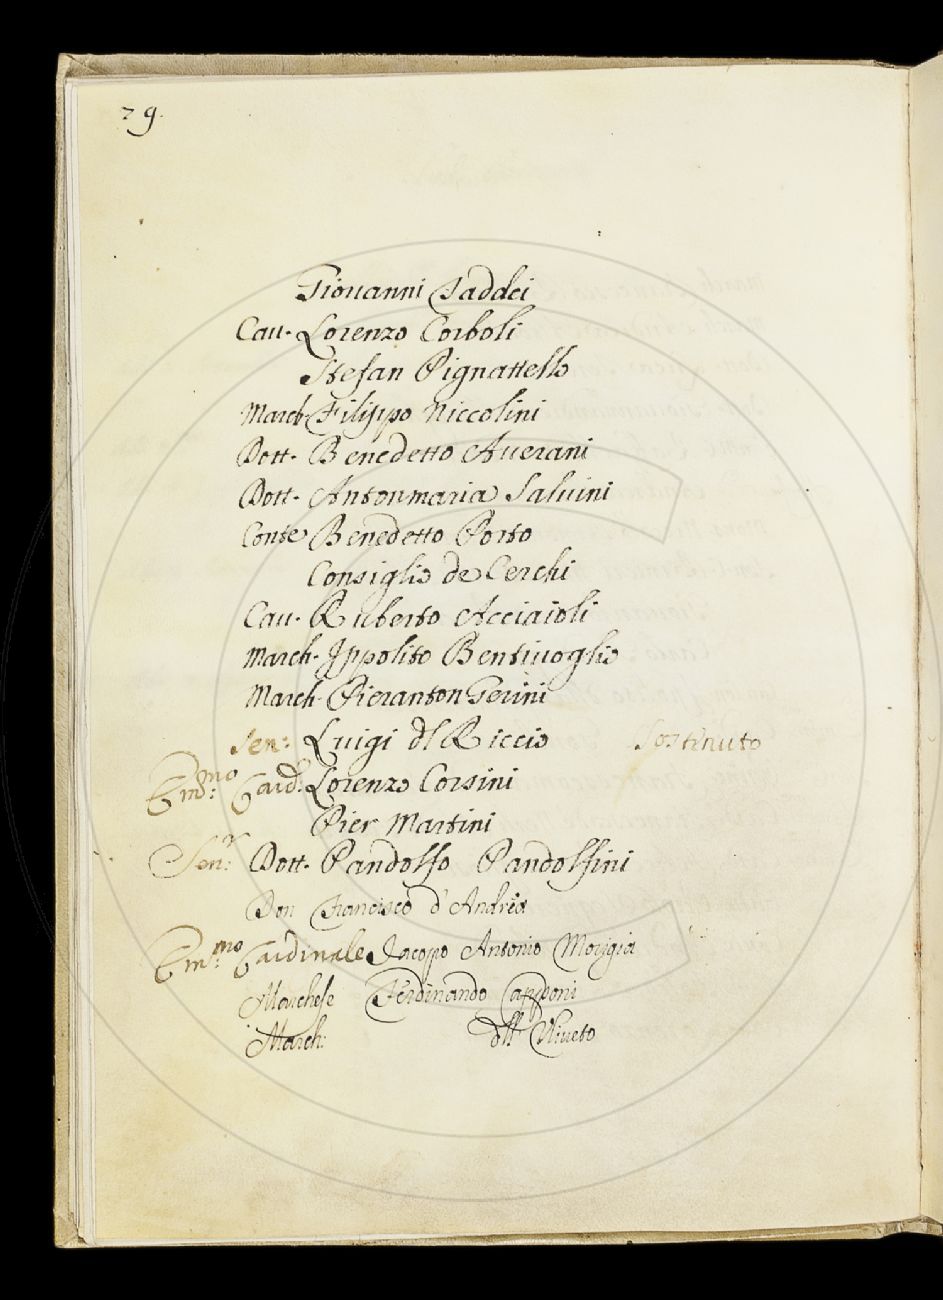 79.
Giouanni Taddei
Cau. Lorenzo Corboli
Stefan Pignattello
March. Filippo Niccolini
Dott. Benedetto Auerani
Dott. Antonmaria Saluini
Conte Benedetto Porto
Consiglio de Cerchi
Cau. Ruberto Acciaioli
March. Ippolito Bentiuoglio
March. Pieranton Gerini
Sen: Luigi dl Riccio Sostenuto
Em.mo Card: Lorenzo Corsini
Pier Martini
Sen:r Dott. Pandolfo Pandolfini
Don Francisco d'Andrea
Em.mo Cardinale Jacopo Antonio Morigia
Marchese Ferdinando Capponi
March: dll' Vliueto